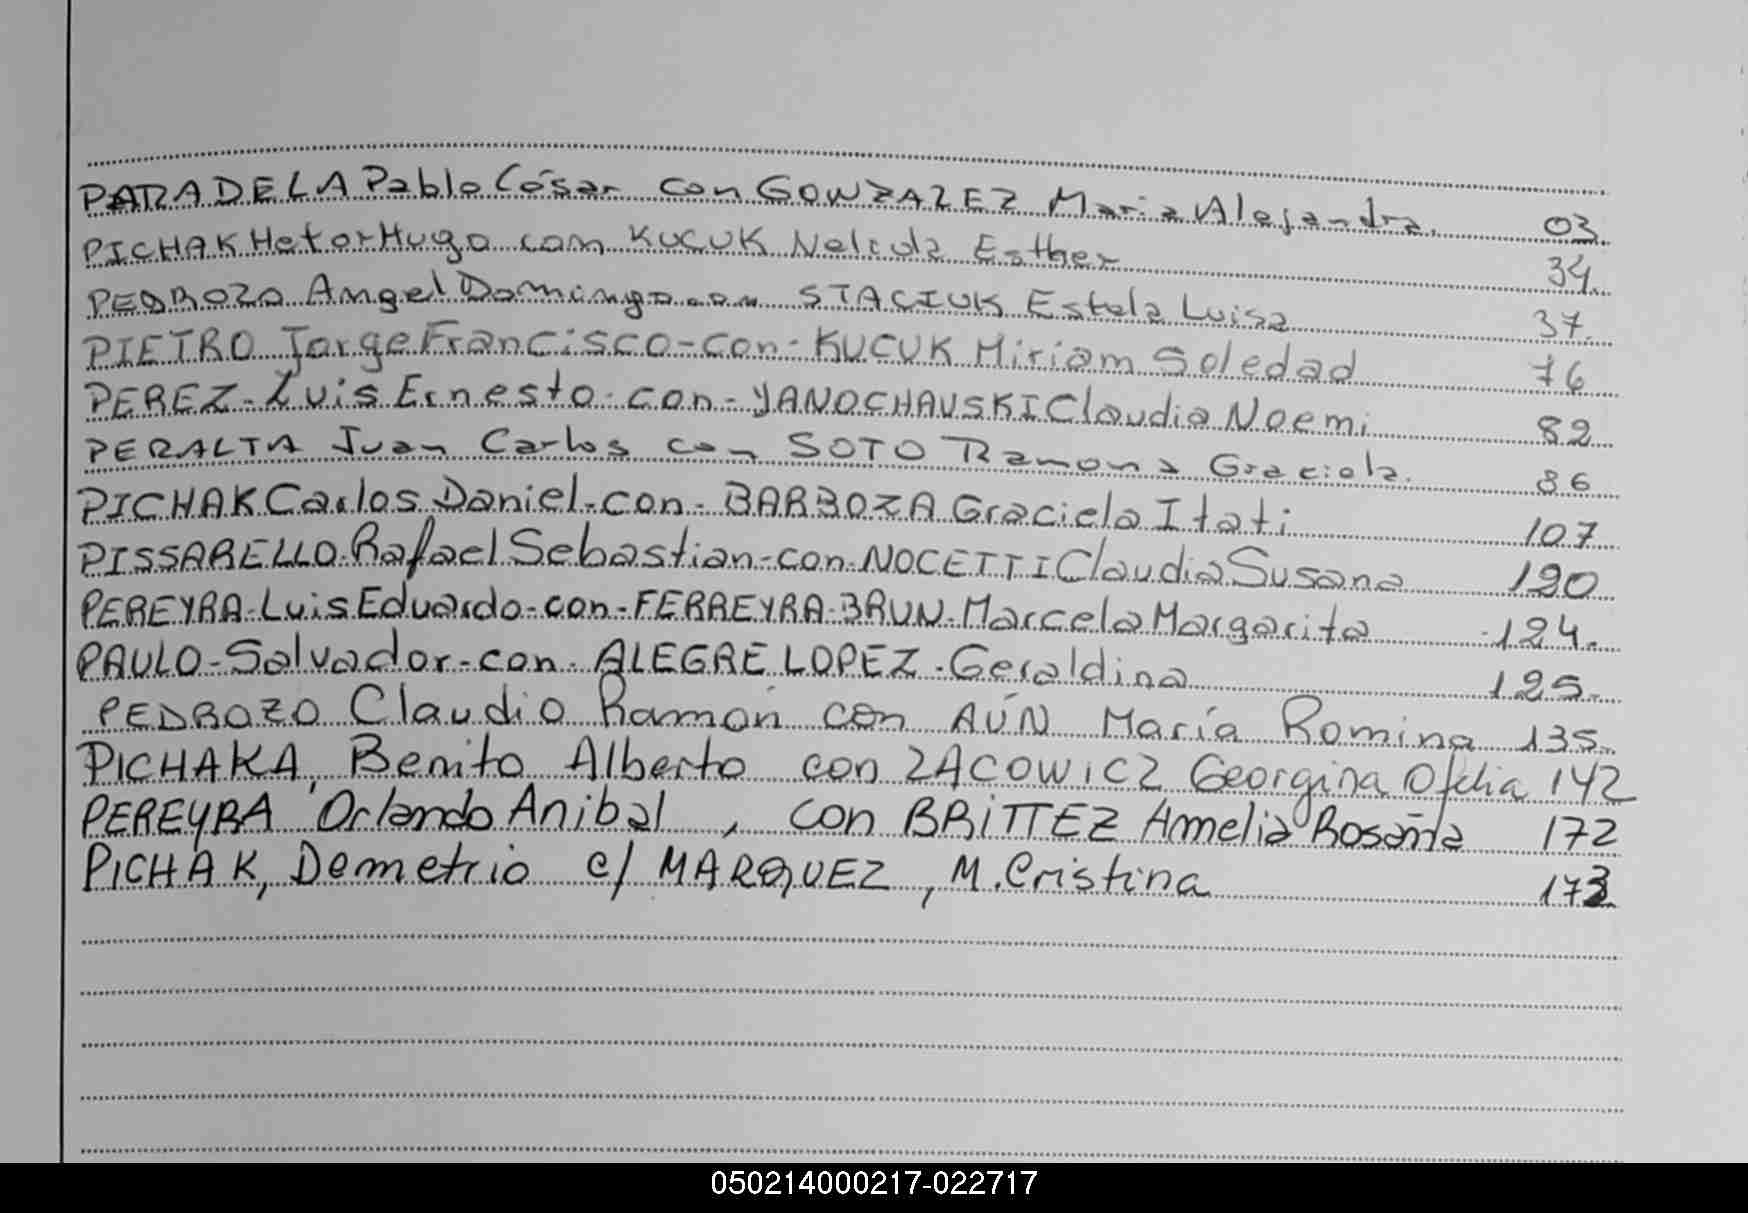 PARADELA Pablo César con GONZALEZ Maria Alejandra. 03.
PICHAK Hetor Hugo con KUCUK Nelida Esther 34.
PEDROZO Angel Domingo con STACIUK Estela Luisa 37.
PIETRO Jorge Francisco-con-KUCUK Miriam Soledad 76
PEREZ-Luis Ernesto-con-YANOCHAUSKI Claudia Noemi 82
PERALTA Juan Carlos con SOTO Ramona Graciela. 86
PICHAK Carlos Daniel-con-BARBOZA Graciela Itati 107
PISSARELLO-Rafael Sebastian-con-NOCETTI Claudia Susana 120
PEREYRA-Luis Eduardo-con-FERREYRA-BRUN-Marcela Margarita 124.
PAULO-Salvador-con-ALEGRE LOPEZ-Geraldina 125.
PEDROZO Claudio Ramón con AÚN María Romina 135.
PICHAKA, Benito Alberto con ZACOWICZ Georgina Ofelia 142
PEREYRA Orlando Anibal, con BRITTEZ Amelia Rosana 172
PICHAK, Demetrio c/ MARQUEZ, M. Cristina 173
050214000217-022717